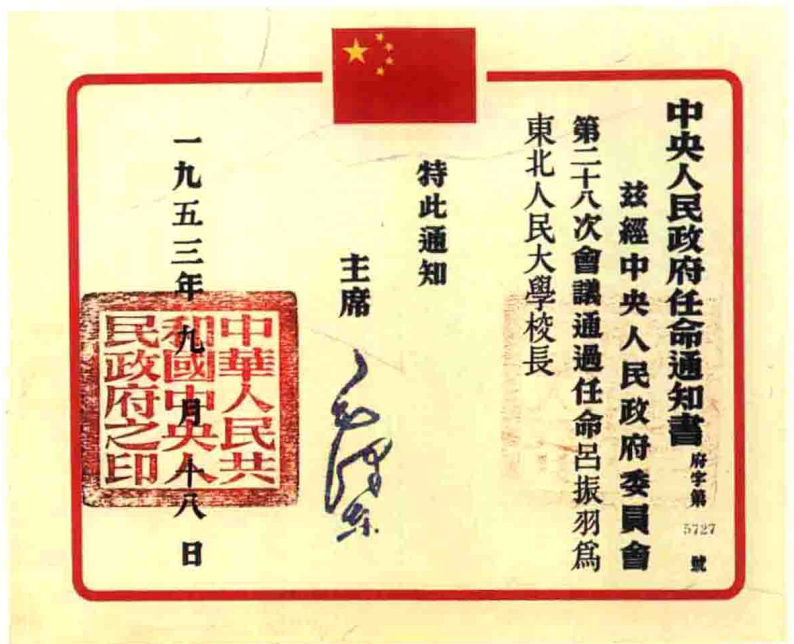 中央人民政府任命通知書
府字第 5727 號
茲經中央人民政府委員會
第二十八次會議通過任命呂振羽爲
東北人民大學校長
特此通知
主席 毛澤東
一九五三年九月十八日
中華人民共
和國中央人
民政府之印